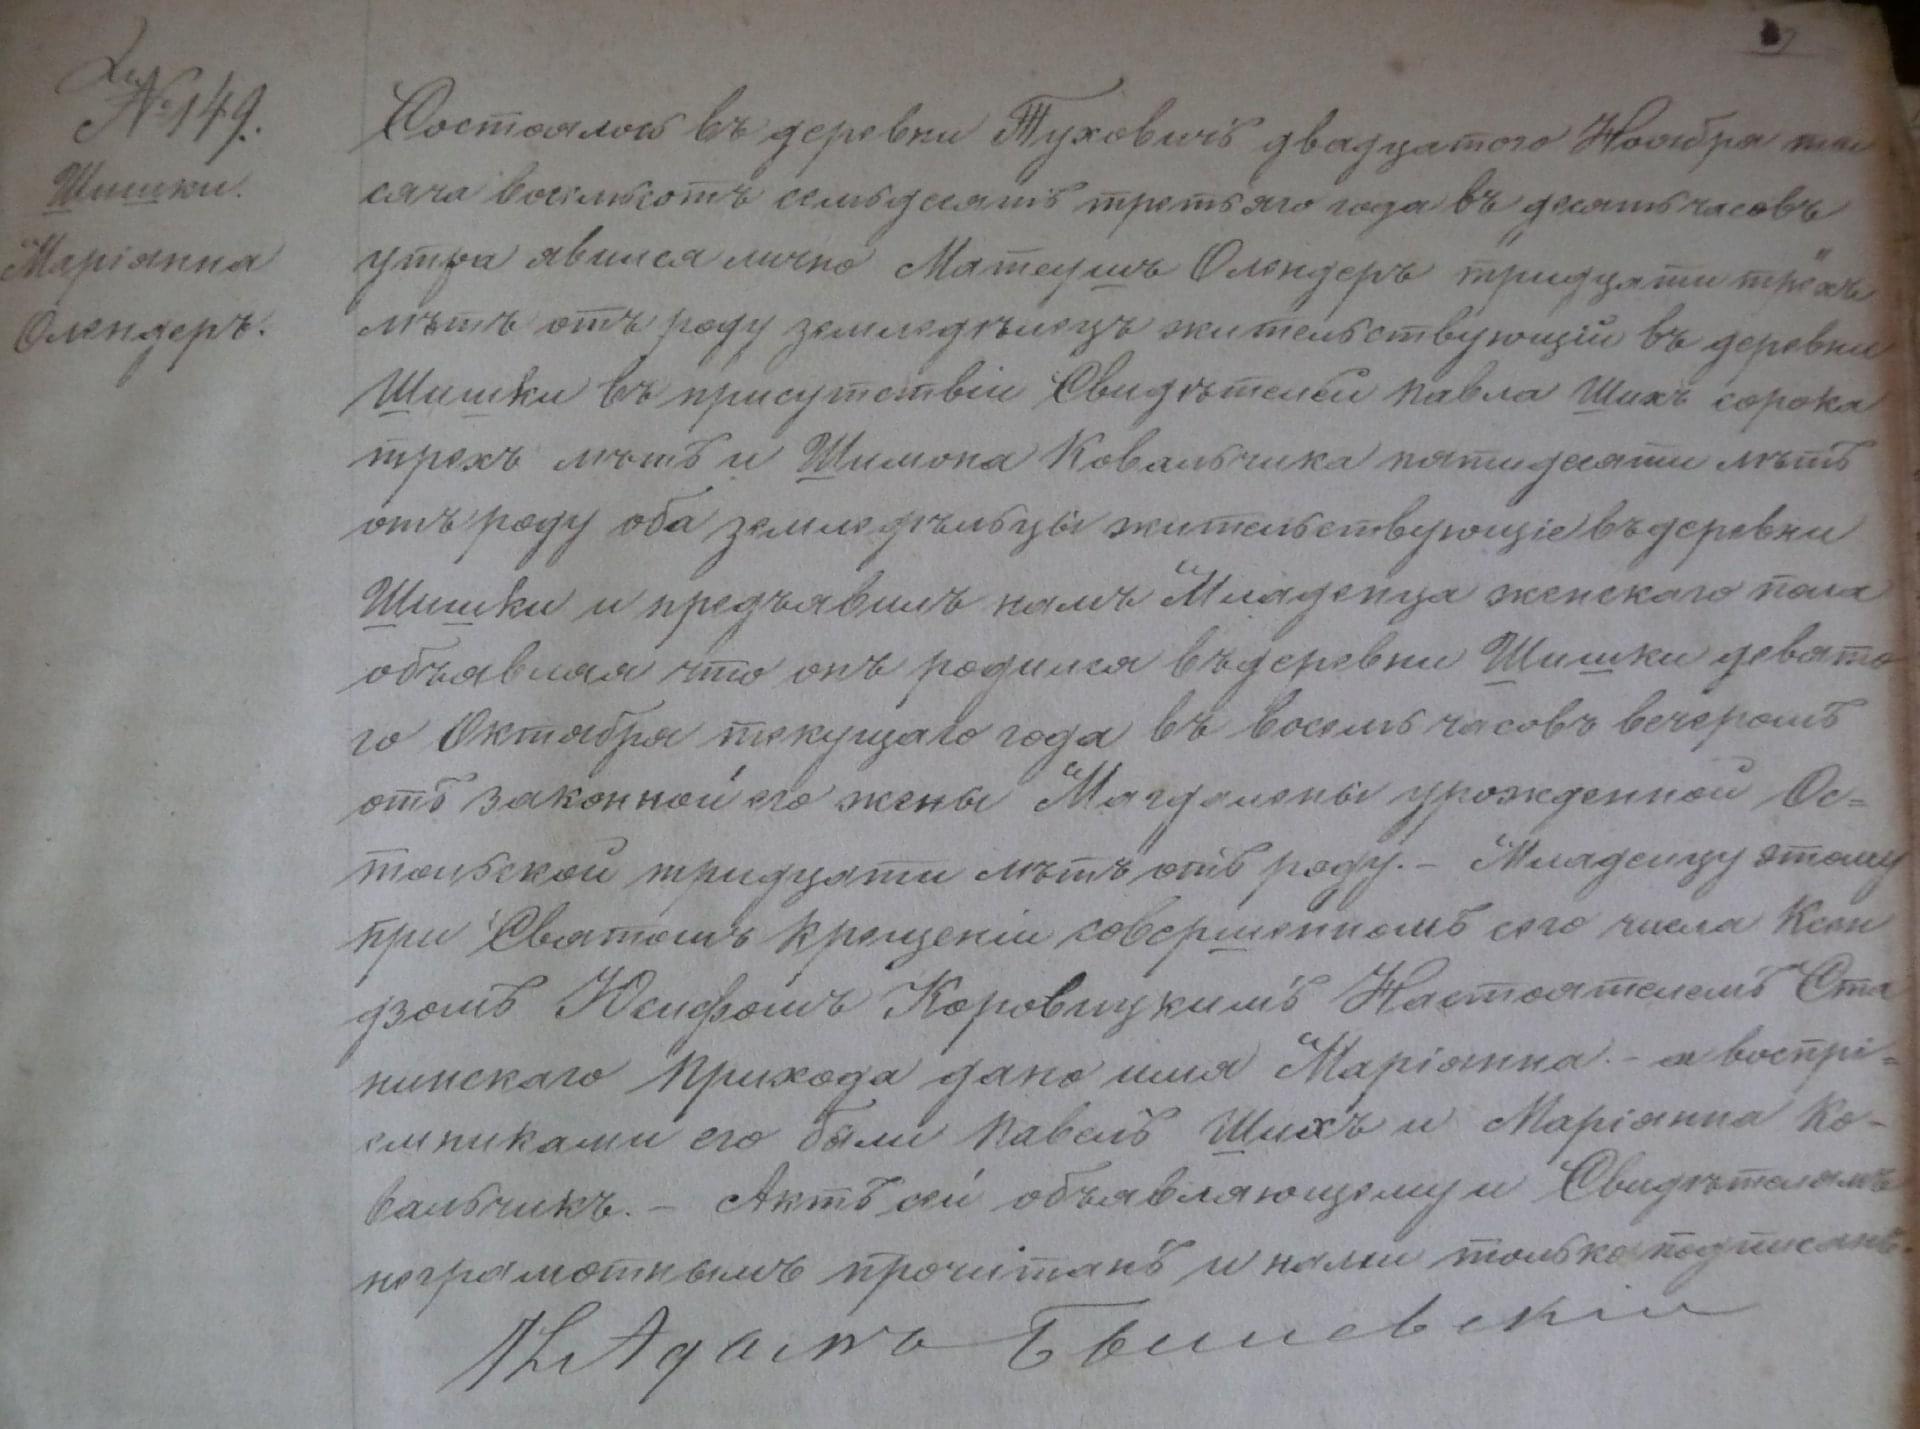 № 149.
Шишки.
Маріянна
Олендеръ.
Состоялось въ деревни Туховичъ двадцатого Ноября ты
сяча восемьсотъ семьдесятъ третьяго года въ десять часовъ
утра явился лично Матеушъ Олендеръ тридцати трёхъ
лѣтъ отъ роду земледѣлецъ жительствующій въ деревни
Шишки въ присутствіи Свидѣтелей Павла Шихъ сорока
трехъ лѣтъ и Шимона Ковальчика пятидесяти лѣтъ
отъ роду оба земледѣльцы жительствующіе въ деревни
Шишки и предъявилъ намъ Младенца женскаго пола
объявляя что онъ родился въ деревни Шишки девято
го Октября текущаго года въ восемь часовъ вечеромъ
отъ законной его жены Магдалены урожденной Ос=
тольской тридцати лѣтъ отъ роду. – Младенцу этому
при Святомъ крещеніи совершенномъ сего числа Ксен
дзомъ Юсифомъ Коровицкимъ Настоятелемъ Ста
нинскаго Прихода дано имя Маріянна. – а воспрі=
емниками его были Павелъ Шихъ и Маріянна Ко-
вальчикъ. – Актъ сей объявляющему и Свидѣтелямъ
неграмотнымъ прочитанъ и нами только подписанъ.
Адамъ